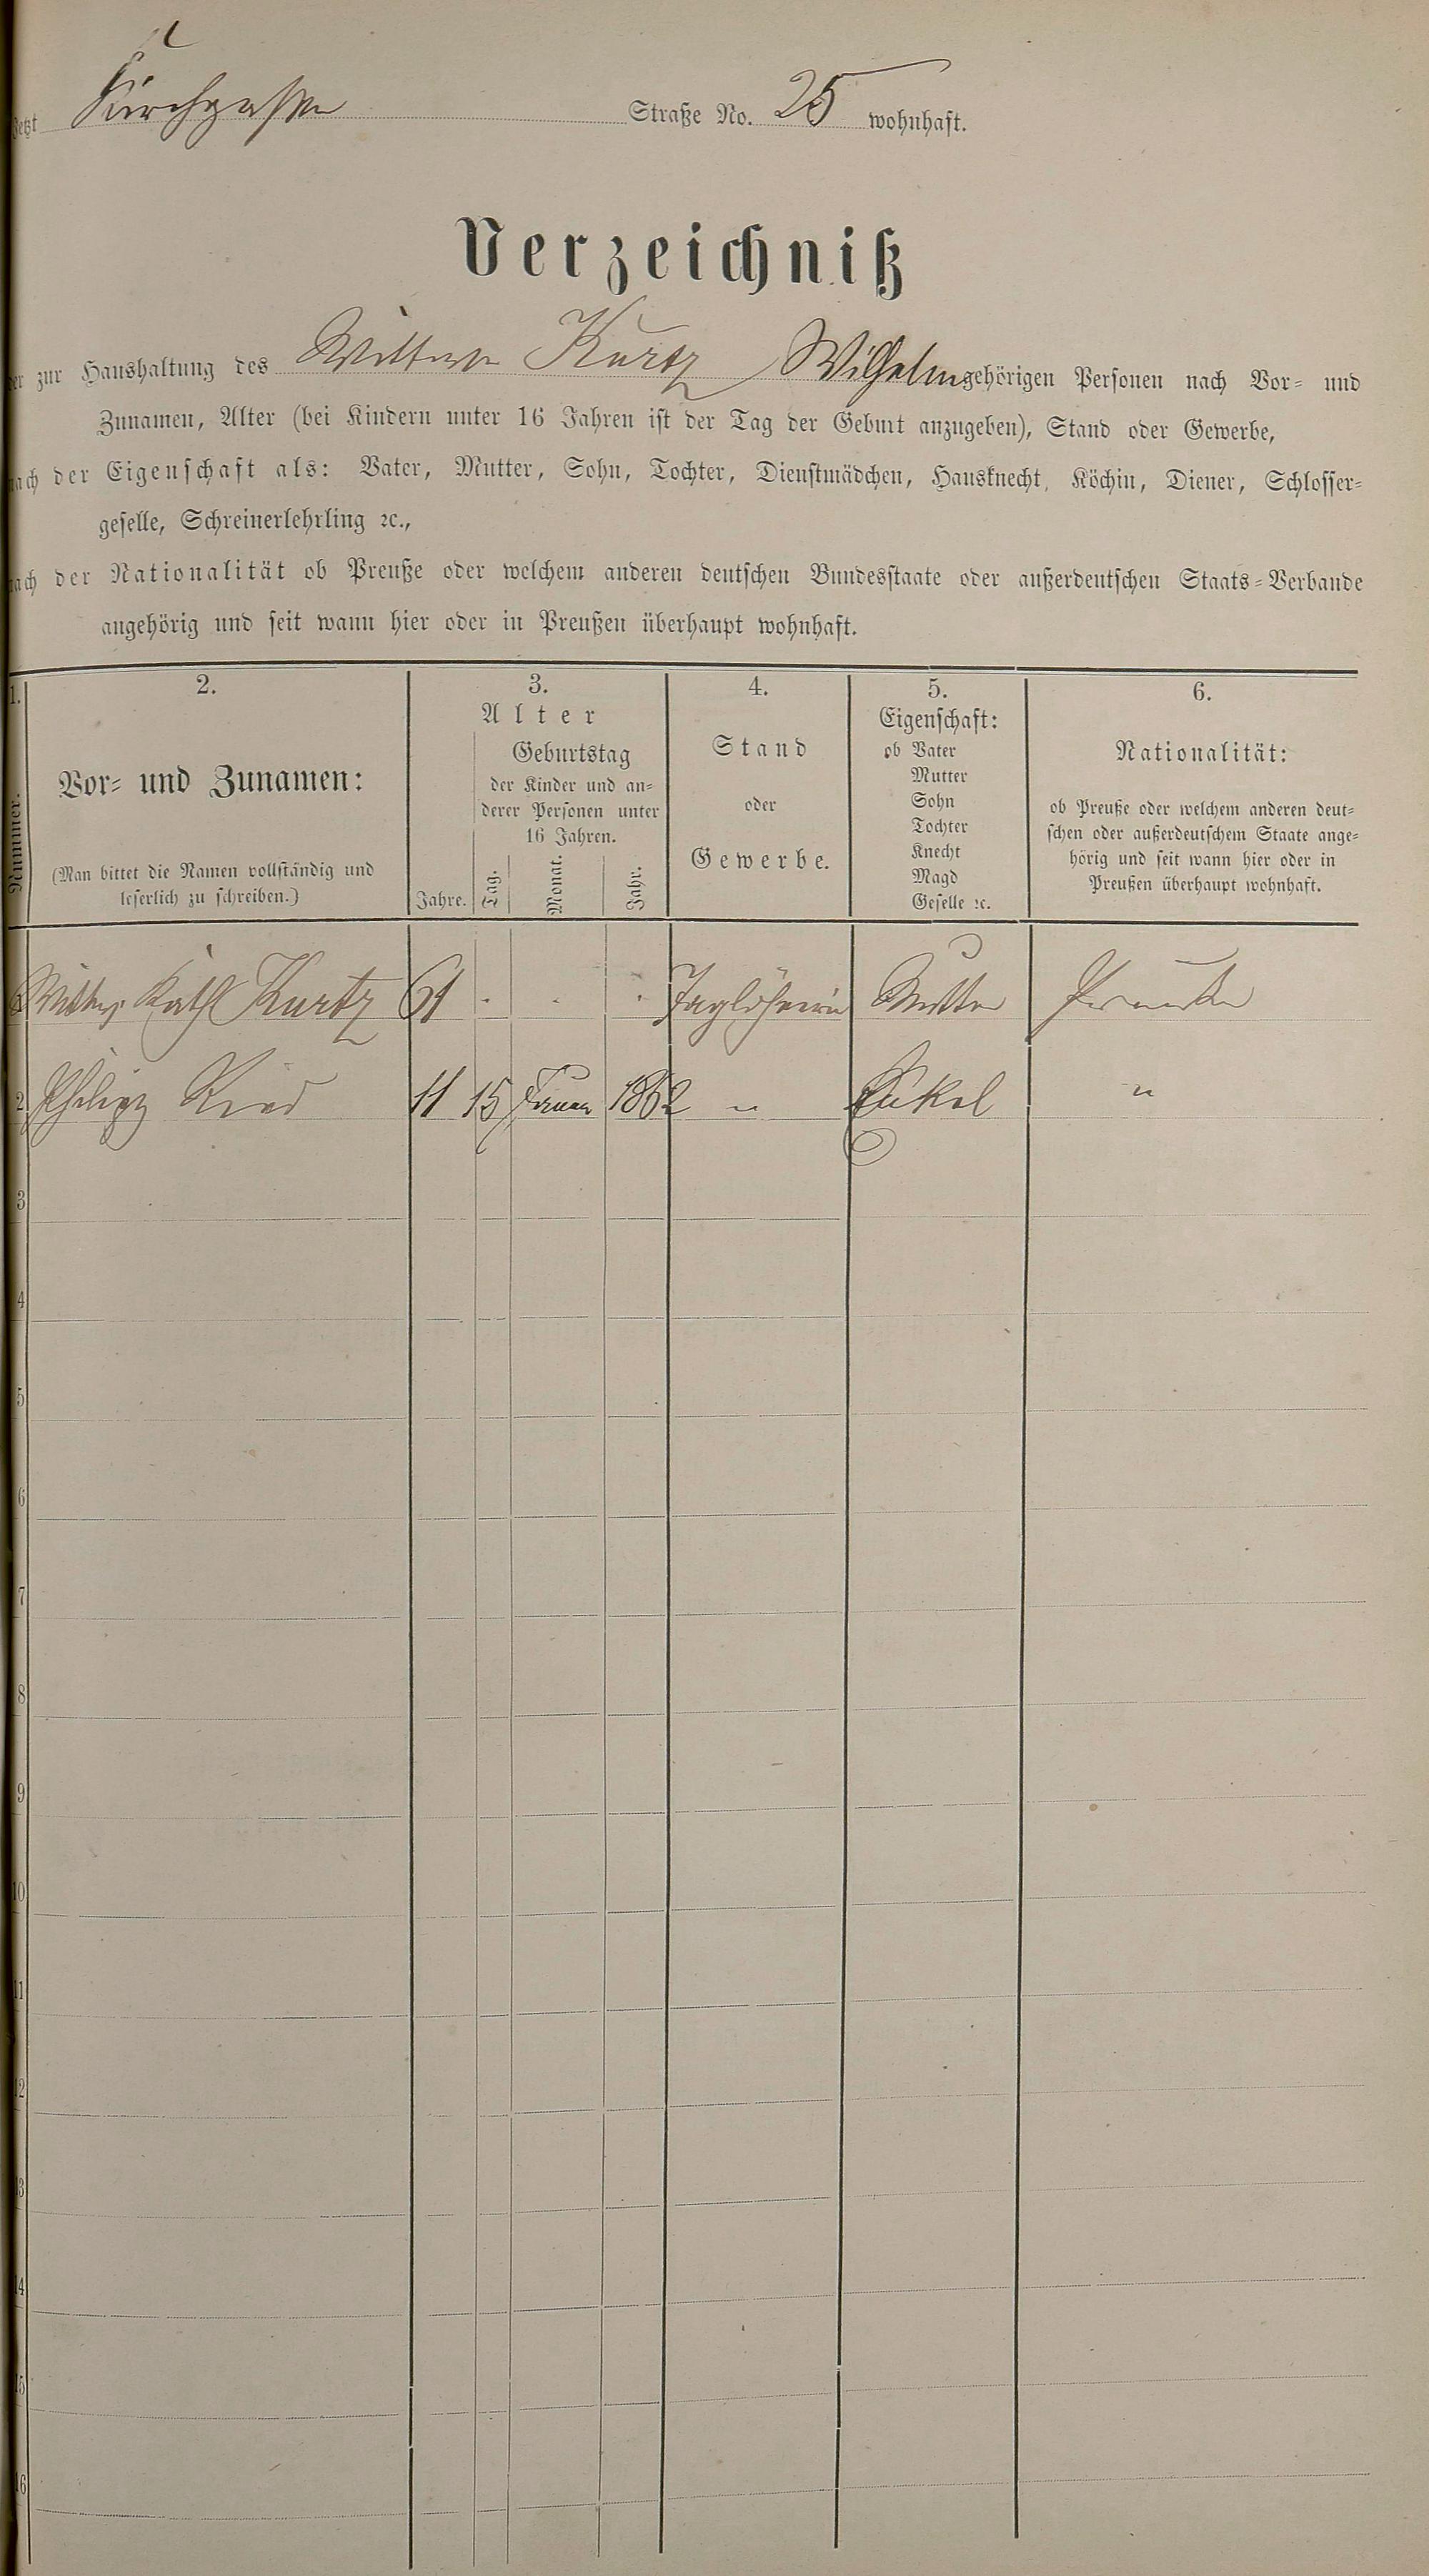 jetzt Kirchgasse Straße No. 25 wohnhaft.
Verzeichniß
der zur Haushaltung des Wittwe Kurtz Wilhelm gehörigen Personen nach Vor- und
Zunamen, Alter (bei Kindern unter 16 Jahren ist der Tag der Geburt anzugeben), Stand oder Gewerbe,
nach der Eigenschaft als: Vater, Mutter, Sohn, Tochter, Dienstmädchen, Hausknecht, Köchin, Diener, Schlosser-
geselle, Schreinerlehrling ꝛc.,
nach der Nationalität ob Preuße oder welchem anderen deutschen Bundesstaate oder außerdeutschen Staats-Verbande
angehörig und seit wann hier oder in Preußen überhaupt wohnhaft.
1.
Nummer.
2.
Vor- und Zunamen:
(Man bittet die Namen vollständig und
leserlich zu schreiben.)
3.
Alter
Jahre.
Geburtstag
der Kinder und an-
derer Personen unter
16 Jahren.
Tag.
Monat.
Jahr.
4.
Stand
oder
Gewerbe.
5.
Eigenschaft:
ob Vater
Mutter
Sohn
Tochter
Knecht
Magd
Geselle ꝛc.
6.
Nationalität:
ob Preuße oder welchem anderen deut-
schen oder außerdeutschem Staate ange-
hörig und seit wann hier oder in
Preußen überhaupt wohnhaft.
Kath Kurtz 61 . . . Taglöhnerin Mutter
2 Philipp Ried 11 15 Januar 1862 " Enkel "
3
4
5
6
7
8
9
10
11
12
13
14
15
16